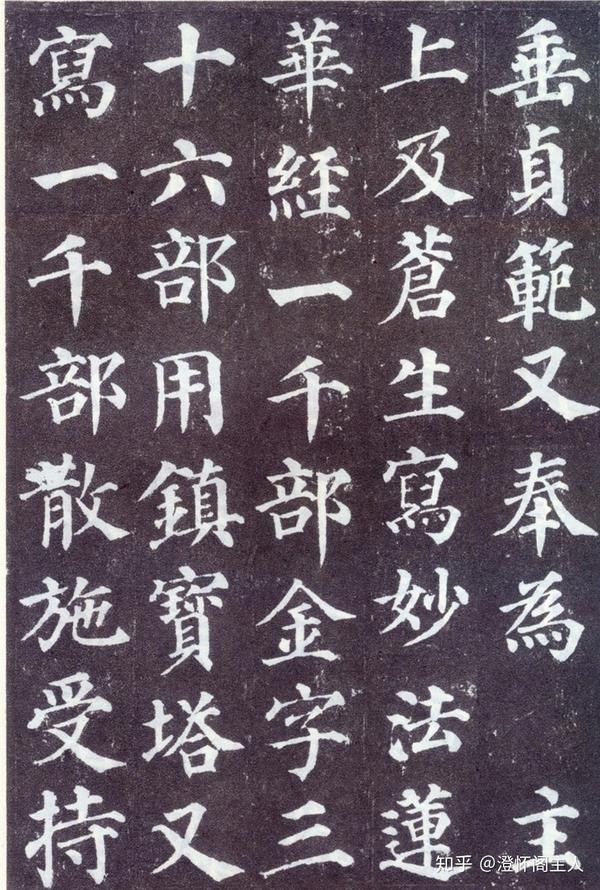 垂貞範又奉為主
上及蒼生寫妙法蓮
華經一千部金字三
十六部用鎮寶塔又
寫一千部散施受持
知乎 @澄怀阁主人